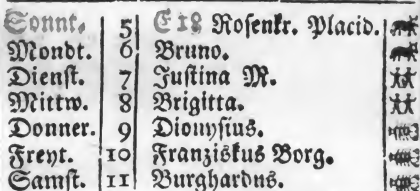 Sonnt. 5 E 18 Rosenkr. Placid.
Mondt. 6 Bruno.
Dienst. 7 Justina M.
Mittw. 8 Brigitta.
Donner. 9 Dionysius.
Freyt. 10 Franziskus Borg.
Samst. 11 Burghardus.